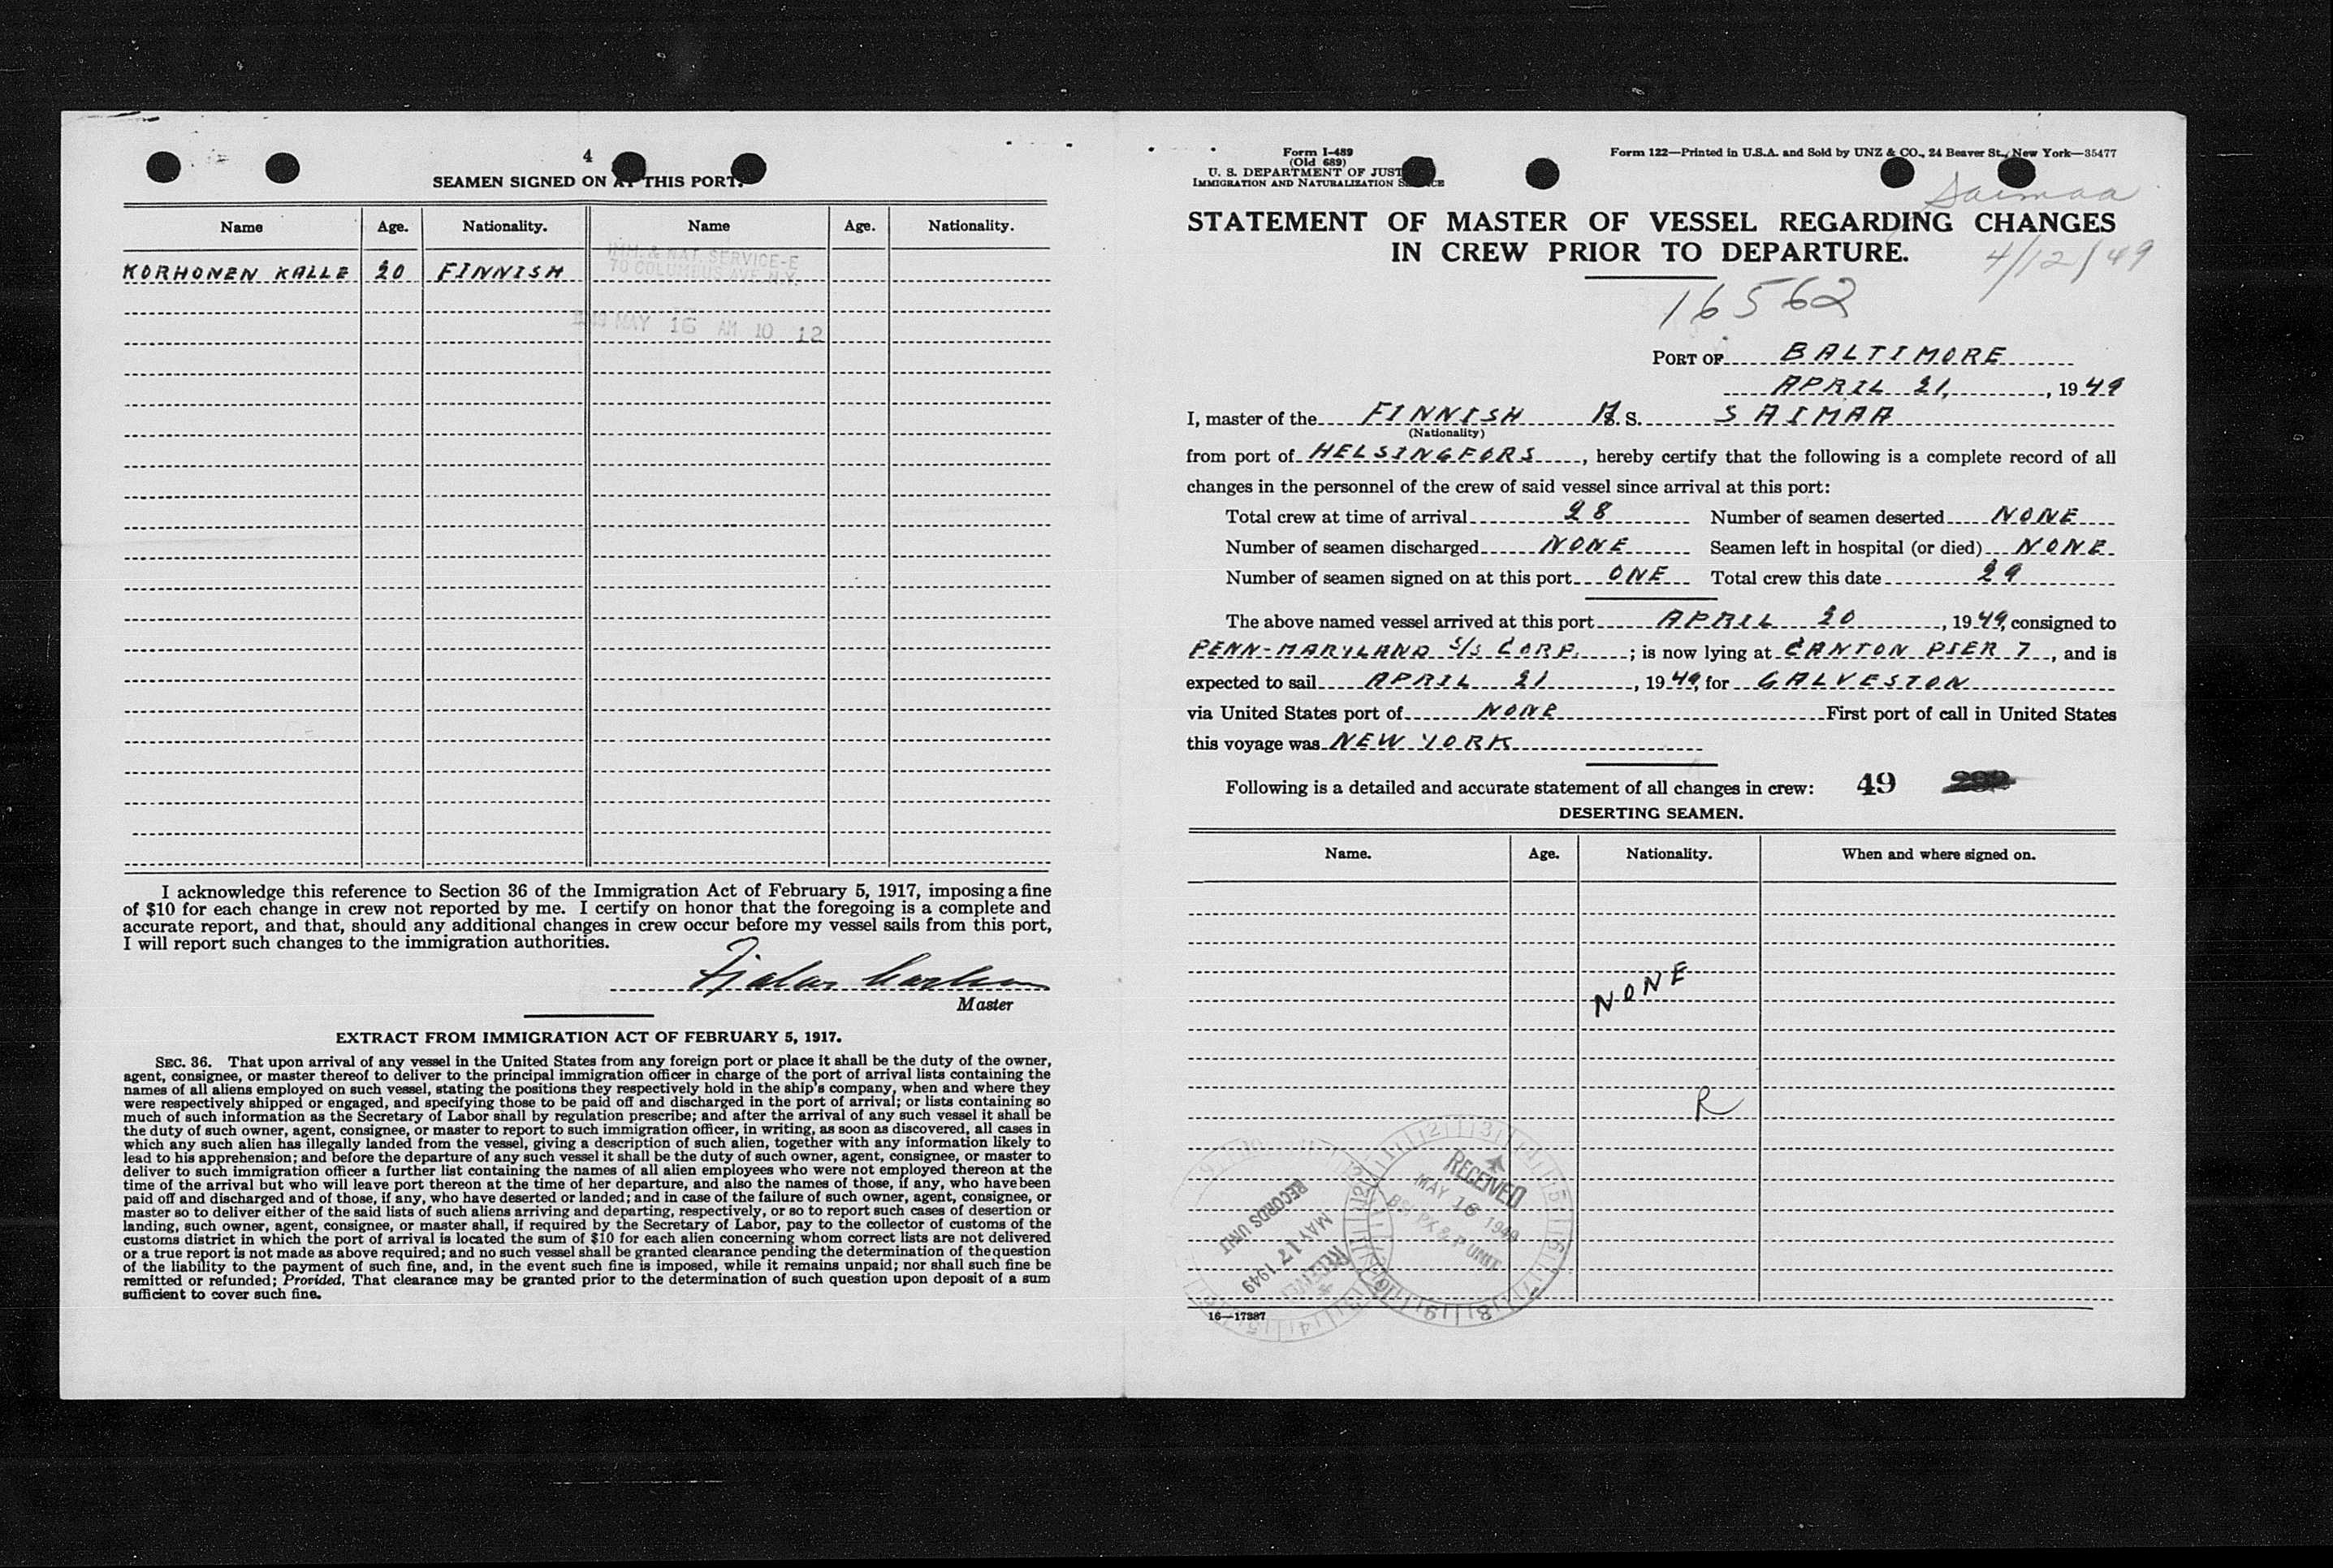 4
SEAMEN SIGNED ON AT THIS PORT.
Name Age. Nationality. Name Age. Nationality.
KORHONEN KALLE 20 FINNISH
IMM. & NAT. SERVICE-E
70 COLUMBUS AVE. N.Y.
1949 MAY 16 AM 10 12
I acknowledge this reference to Section 36 of the Immigration Act of February 5, 1917, imposing a fine
of $10 for each change in crew not reported by me. I certify on honor that the foregoing is a complete and
accurate report, and that, should any additional changes in crew occur before my vessel sails from this port,
I will report such changes to the immigration authorities.
Master
EXTRACT FROM IMMIGRATION ACT OF FEBRUARY 5, 1917.
SEC. 36. That upon arrival of any vessel in the United States from any foreign port or place it shall be the duty of the owner,
agent, consignee, or master thereof to deliver to the principal immigration officer in charge of the port of arrival lists containing the
names of all aliens employed on such vessel, stating the positions they respectively hold in the ship's company, when and where they
were respectively shipped or engaged, and specifying those to be paid off and discharged in the port of arrival; or lists containing so
much of such information as the Secretary of Labor shall by regulation prescribe; and after the arrival of any such vessel it shall be
the duty of such owner, agent, consignee, or master to report to such immigration officer, in writing, as soon as discovered, all cases in
which any such alien has illegally landed from the vessel, giving a description of such alien, together with any information likely to
lead to his apprehension; and before the departure of any such vessel it shall be the duty of such owner, agent, consignee, or master to
deliver to such immigration officer a further list containing the names of all alien employees who were not employed thereon at the
time of the arrival but who will leave port thereon at the time of her departure, and also the names of those, if any, who have been
paid off and discharged and of those, if any, who have deserted or landed; and in case of the failure of such owner, agent, consignee, or
master so to deliver either of the said lists of such aliens arriving and departing, respectively, or so to report such cases of desertion or
landing, such owner, agent, consignee, or master shall, if required by the Secretary of Labor, pay to the collector of customs of the
customs district in which the port of arrival is located the sum of $10 for each alien concerning whom correct lists are not delivered
or a true report is not made as above required; and no such vessel shall be granted clearance pending the determination of the question
of the liability to the payment of such fine, and, in the event such fine is imposed, while it remains unpaid; nor shall such fine be
remitted or refunded; Provided, That clearance may be granted prior to the determination of such question upon deposit of a sum
sufficient to cover such fine.
Form I-489
(Old 689)
U. S. DEPARTMENT OF JUST
IMMIGRATION AND NATURALIZATION SERVICE
Form 122—Printed in U.S.A. and Sold by UNZ & CO., 24 Beaver St., New York—35477
Saimaa
STATEMENT OF MASTER OF VESSEL REGARDING CHANGES
IN CREW PRIOR TO DEPARTURE.
4/12/49
16562
PORT OF BALTIMORE
APRIL 21, 1949
I, master of the FINNISH M. S. SAIMAA
(Nationality)
from port of HELSINGFORS, hereby certify that the following is a complete record of all
changes in the personnel of the crew of said vessel since arrival at this port:
Total crew at time of arrival 28 Number of seamen deserted NONE
Number of seamen discharged NONE Seamen left in hospital (or died) NONE
Number of seamen signed on at this port ONE Total crew this date 29
The above named vessel arrived at this port APRIL 20, 1949, consigned to
PENN-MARYLAND S/S CORP.; is now lying at CANTON PIER 7, and is
expected to sail APRIL 21, 1949, for GALVESTON
via United States port of NONE First port of call in United States
this voyage was NEW YORK
Following is a detailed and accurate statement of all changes in crew: 49
DESERTING SEAMEN.
Name. Age. Nationality. When and where signed on.
NONE
R
RECEIVED
MAY 16 1949
BSI PX & P UNIT
RECORDS UNIT
MAY 17 1949
RECEIVED
16—17387